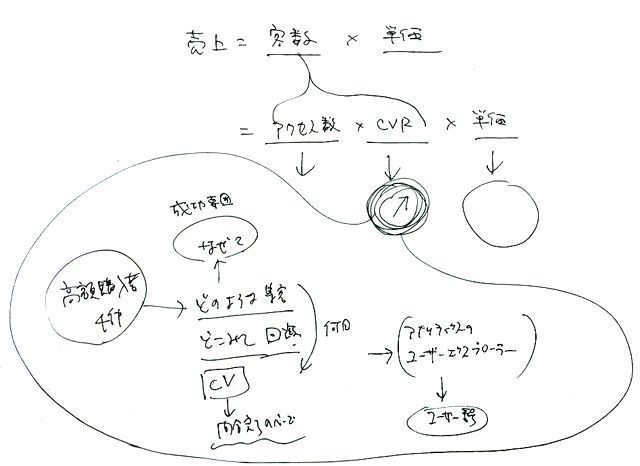 売上 = 客数 × 単価
= アクセス数 × CVR × 単価
成功要因
なぜ?
高額購入者
4件
どのような
どこみて 回遊
何日
CV
アナリティクスの
ユーザーエクスプローラー
ユーザー